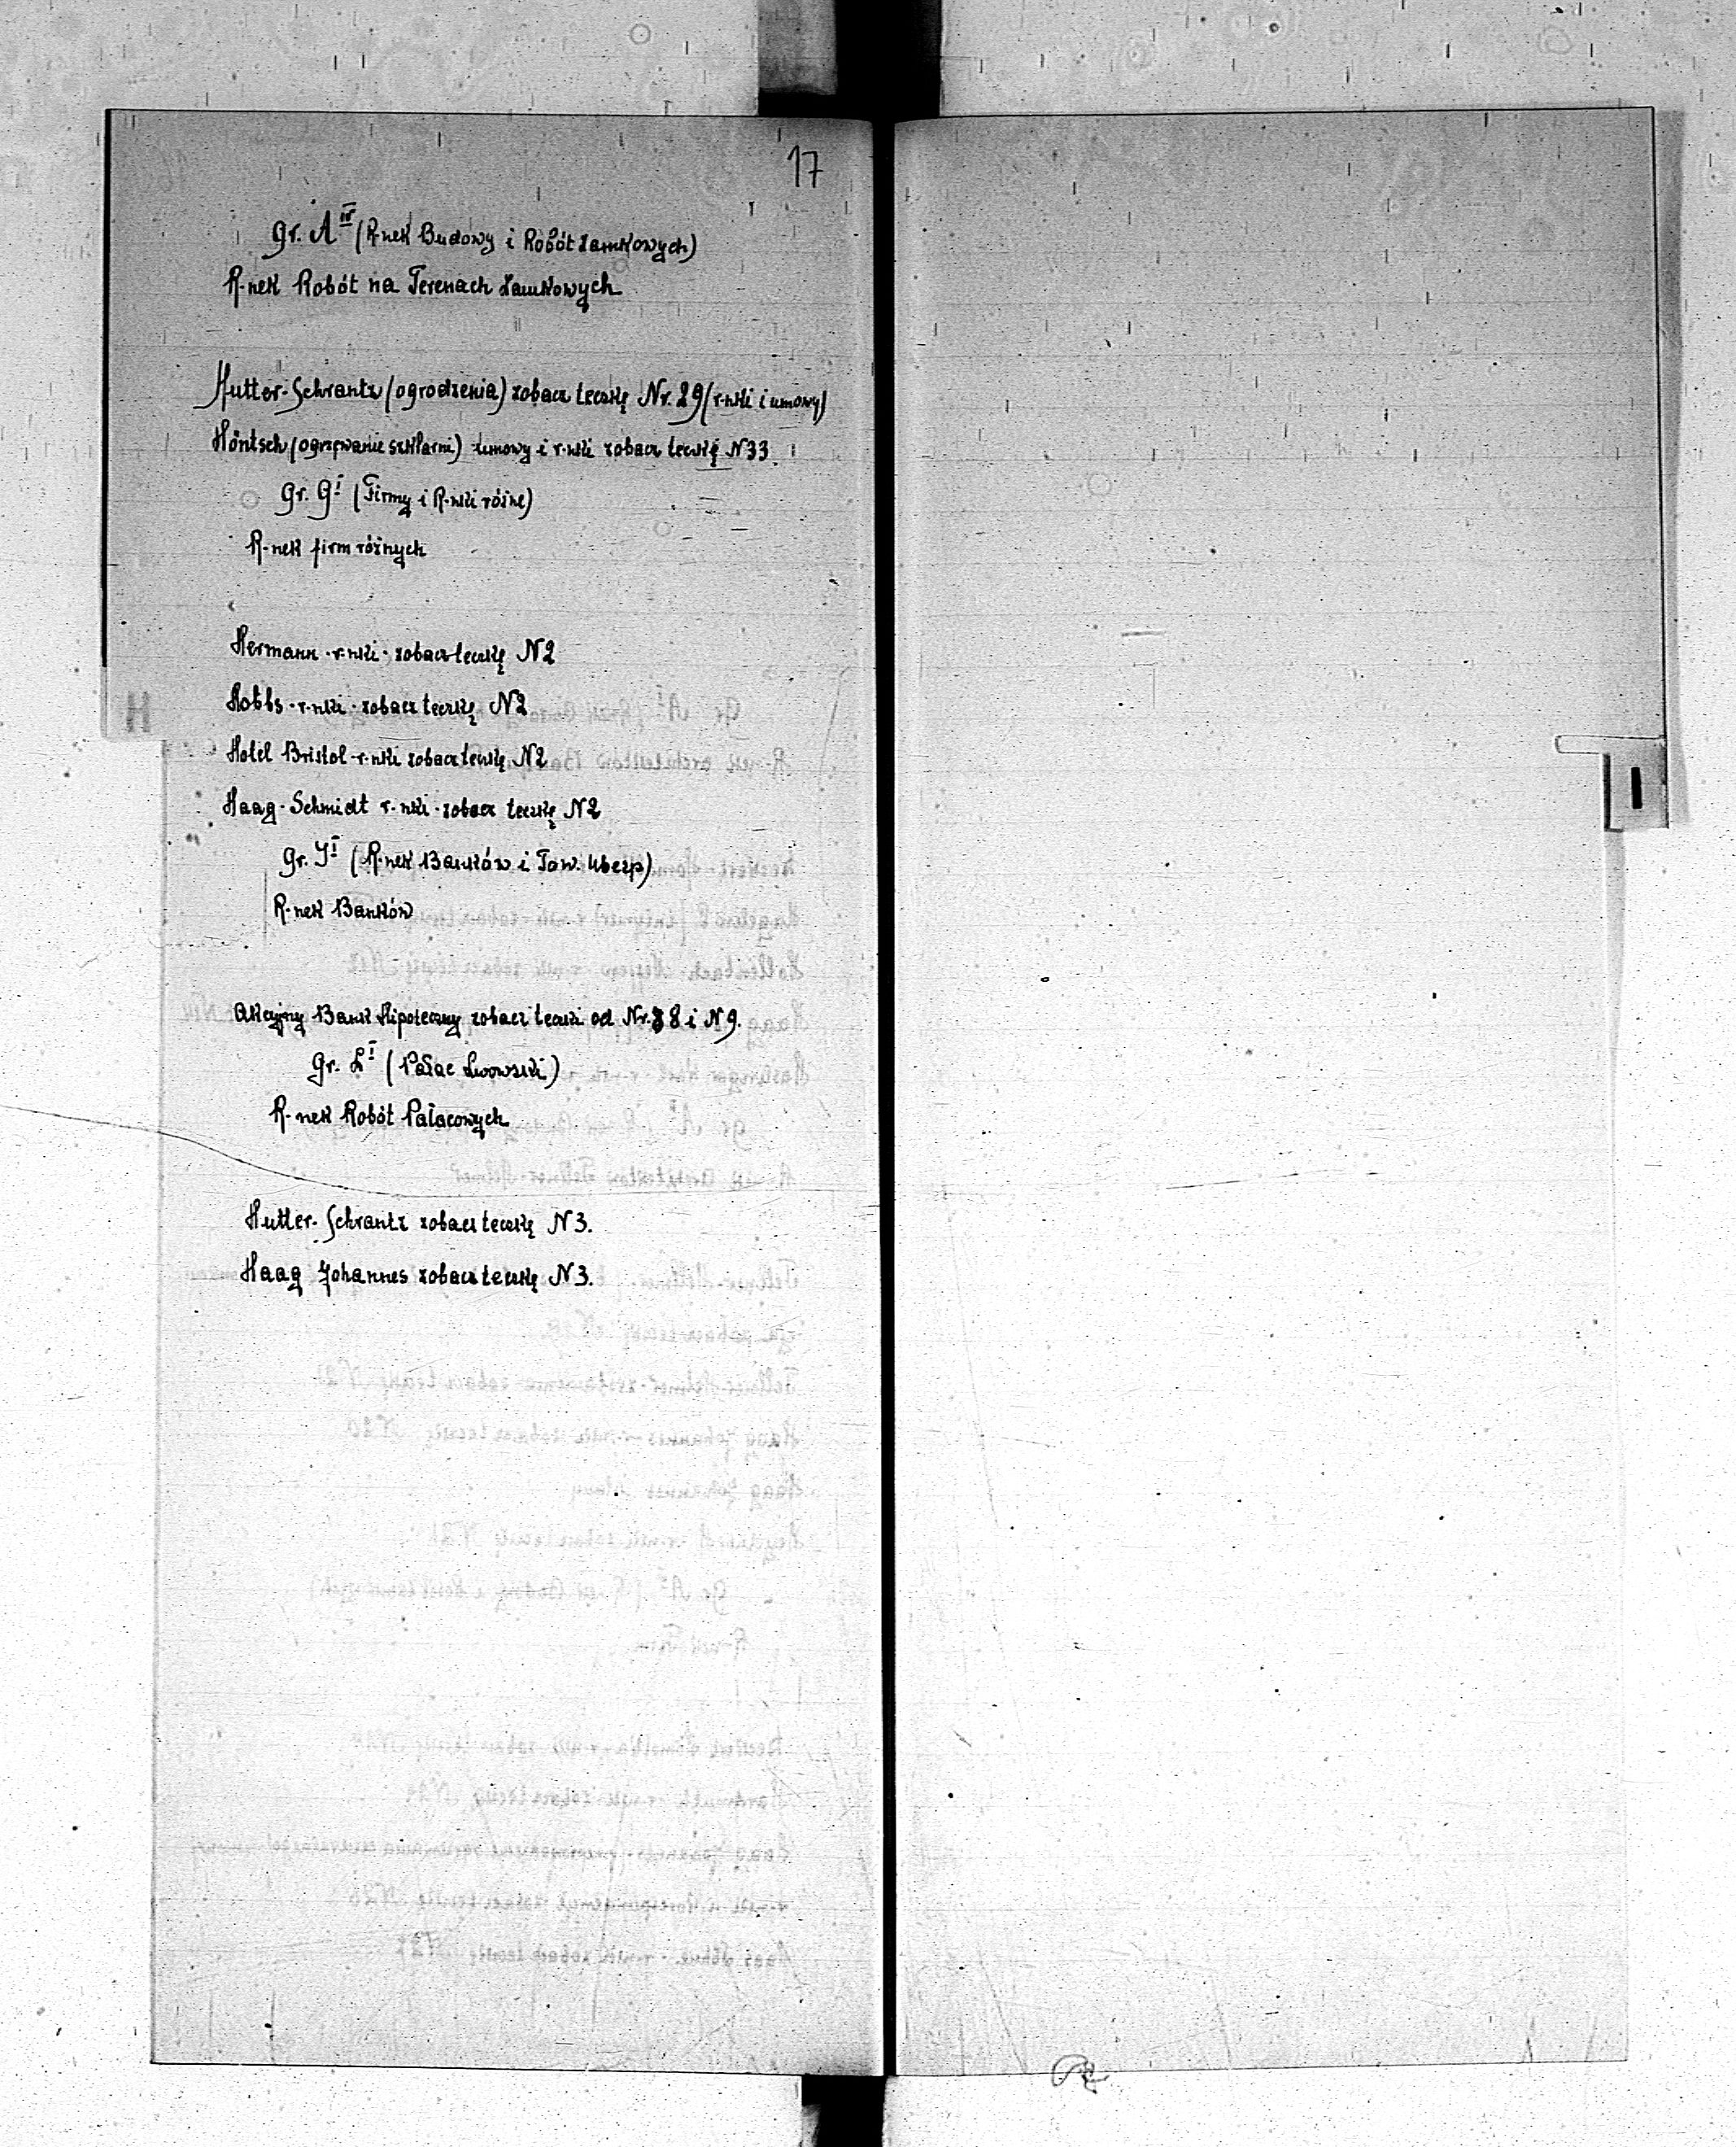 17
Gr. A IV (R-nek Budowy i Robót Zamkowych)
R-nek Robót na Terenach Zamkowych
Hutter-Schrantz (ogrodzenia) zobacz teczkę Nr. 29 (r-nki i umowy)
Höntsch (ogrzewanie szklarni) umowy i r-nki zobacz teczkę N 33
Gr. G I (Firmy i R-nki różne)
R-nek firm różnych
Hermann - r-nki - zobacz teczkę N 2
Hobbs - r-nki - zobacz teczkę N 2
Hotel Bristol - r-nki zobacz teczkę N 2
Haag - Schmidt r-nki - zobacz teczkę N 2
Gr. J I (R-nek Banków i Tow. Ubezp)
R-nek Banków
Akcyjny Bank Hipoteczny zobacz teczki od Nr. 8 i N 9.
Gr. L I (Pałac Lwowski)
R-nek Robót Pałacowych
Hutter-Schrantz zobacz teczkę N 3.
Haag Johannes zobacz teczkę N 3.
H
I